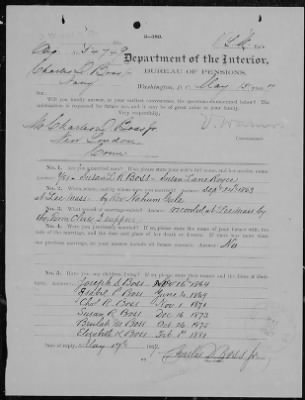 3—389.
Department of the Interior,
BUREAU OF PENSIONS,
Washington, D. C.,
Charles D. Boss Jr
Navy
Will you kindly answer, at your earliest convenience, the questions enumerated below? The
information is requested for future use, and it may be of great value to your family.
Mr Charles D. Boss Jr
New London
Conn
No. 1. Are you a married man? If so, please state your wife's full name, and her maiden name.
Answer: Yes - Susan L. R. Boss - Susan Lane Royce
No. 2. When, where, and by whom were you married? Answer: Sept 22nd 1863
at Lee Mass - by Rev Nahum Gale
No. 3. What record of marriage exists? Answer: recorded at Lee Mass by
the Town Clerk I suppose
No. 4. Were you previously married? If so, please state the name of your former wife, with the date of
the marriage, and the date and place of her death or divorce. Answer: No
No. 5. Have you any children living? If so, please state their names and the dates of their
birth. Answer:
Joseph S Boss - Nov 16 1864
Isabel P Boss June 14 1869
Chas R. Boss Nov 1 1870
Susan R Boss Dec 16 1873
Beulah M Boss Dec 16 1875
Elizabeth L Boss Feb 8 1881
Date of reply, May 17th 1897
Charles D. Boss Jr